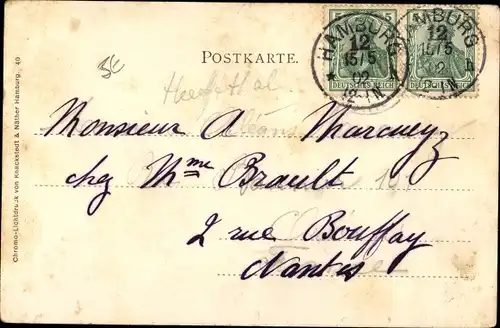 POSTKARTE.
5
HAMBURG
12
15/5
02
12-1N
* h
DEUTSCHES REICH
HAMBURG
12
15/5
2
1N
h
DEUTSCHES REICH
Monsieur A Marcuyz
chez Mme Brault
2 rue Bouffay
Nantes
Chromo-Lichtdruck von Knackstedt & Näther Hamburg. 49